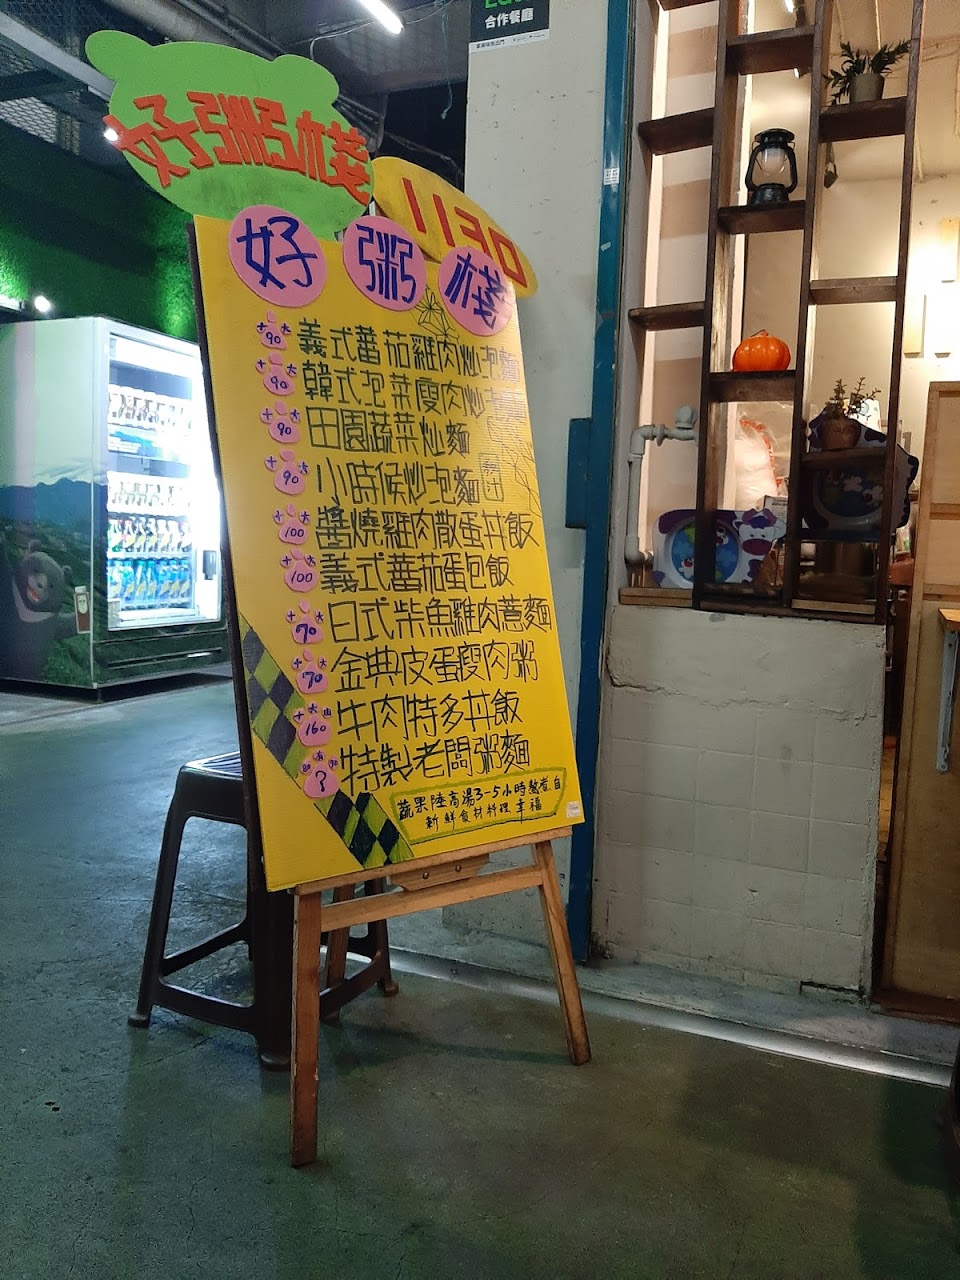 合作餐廳
好粥棧
1130
好粥棧
90 義式蕃茄雞肉炒泡麵
90 韓式泡菜瘦肉炒
90 田園蔬菜炒麵
90 小時候炒泡麵
100 醬燒雞肉散蛋丼飯
100 義式蕃茄蛋包飯
70 日式柴魚雞肉蕎麵
70 金典皮蛋瘦肉粥
160 牛肉特多丼飯
? 特製老闆粥麵
蔬果陸高湯3-5小時熬煮.自
新鮮食材料理 幸福